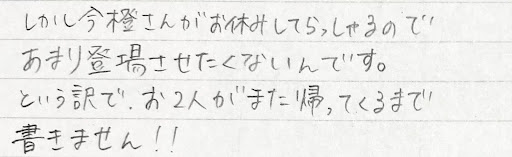 しかし今橙さんがお休みしてらっしゃるので
あまり登場させたくないんです。
という訳で、お2人がまた帰ってくるまで
書きません!!